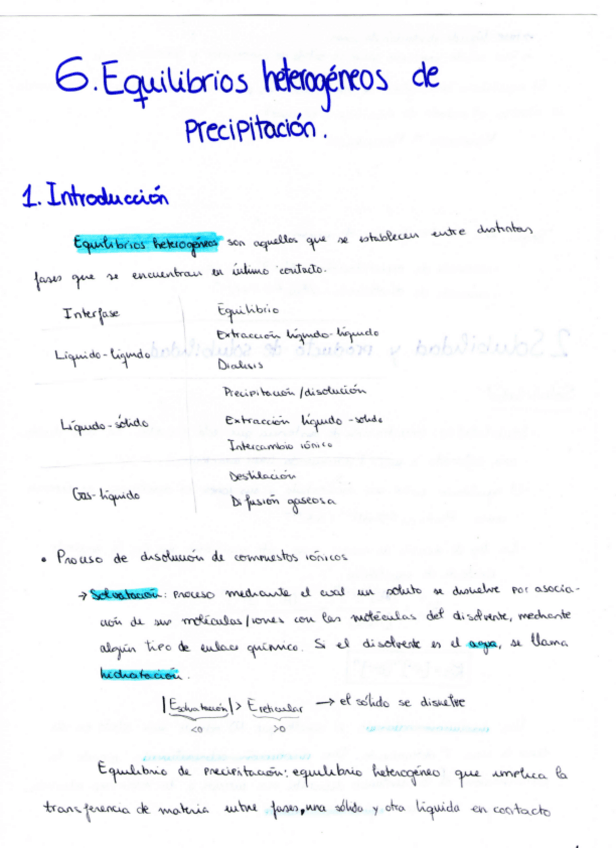 6. Equilibrios heterogéneos de
Precipitación.
1. Introducción
Equilibrios heterogéneos son aquellos que se establecen entre distintas
fases que se encuentran en íntimo contacto.
Interfase Equilibrio
Líquido-líquido Extracción líquido-líquido
Dialisis
Líquido-sólido Precipitación/disolución
Extracción líquido-sólido
Intercambio iónico
Gas-líquido Destilación
Difusión gaseosa
• Proceso de disolución de compuestos iónicos
→ Solvatación: proceso mediante el cual un soluto se disuelve por asocia-
ción de sus moléculas/iones con las moléculas del disolvente, mediante
algún tipo de enlace químico. Si el disolvente es el agua, se llama
hidratación.
|Esolvatación| > Ereticular → el sólido se disuelve
<0 >0
Equilibrio de precipitación: equilibrio heterogéneo que implica la
transferencia de materia entre fases, una sólida y otra líquida en contacto